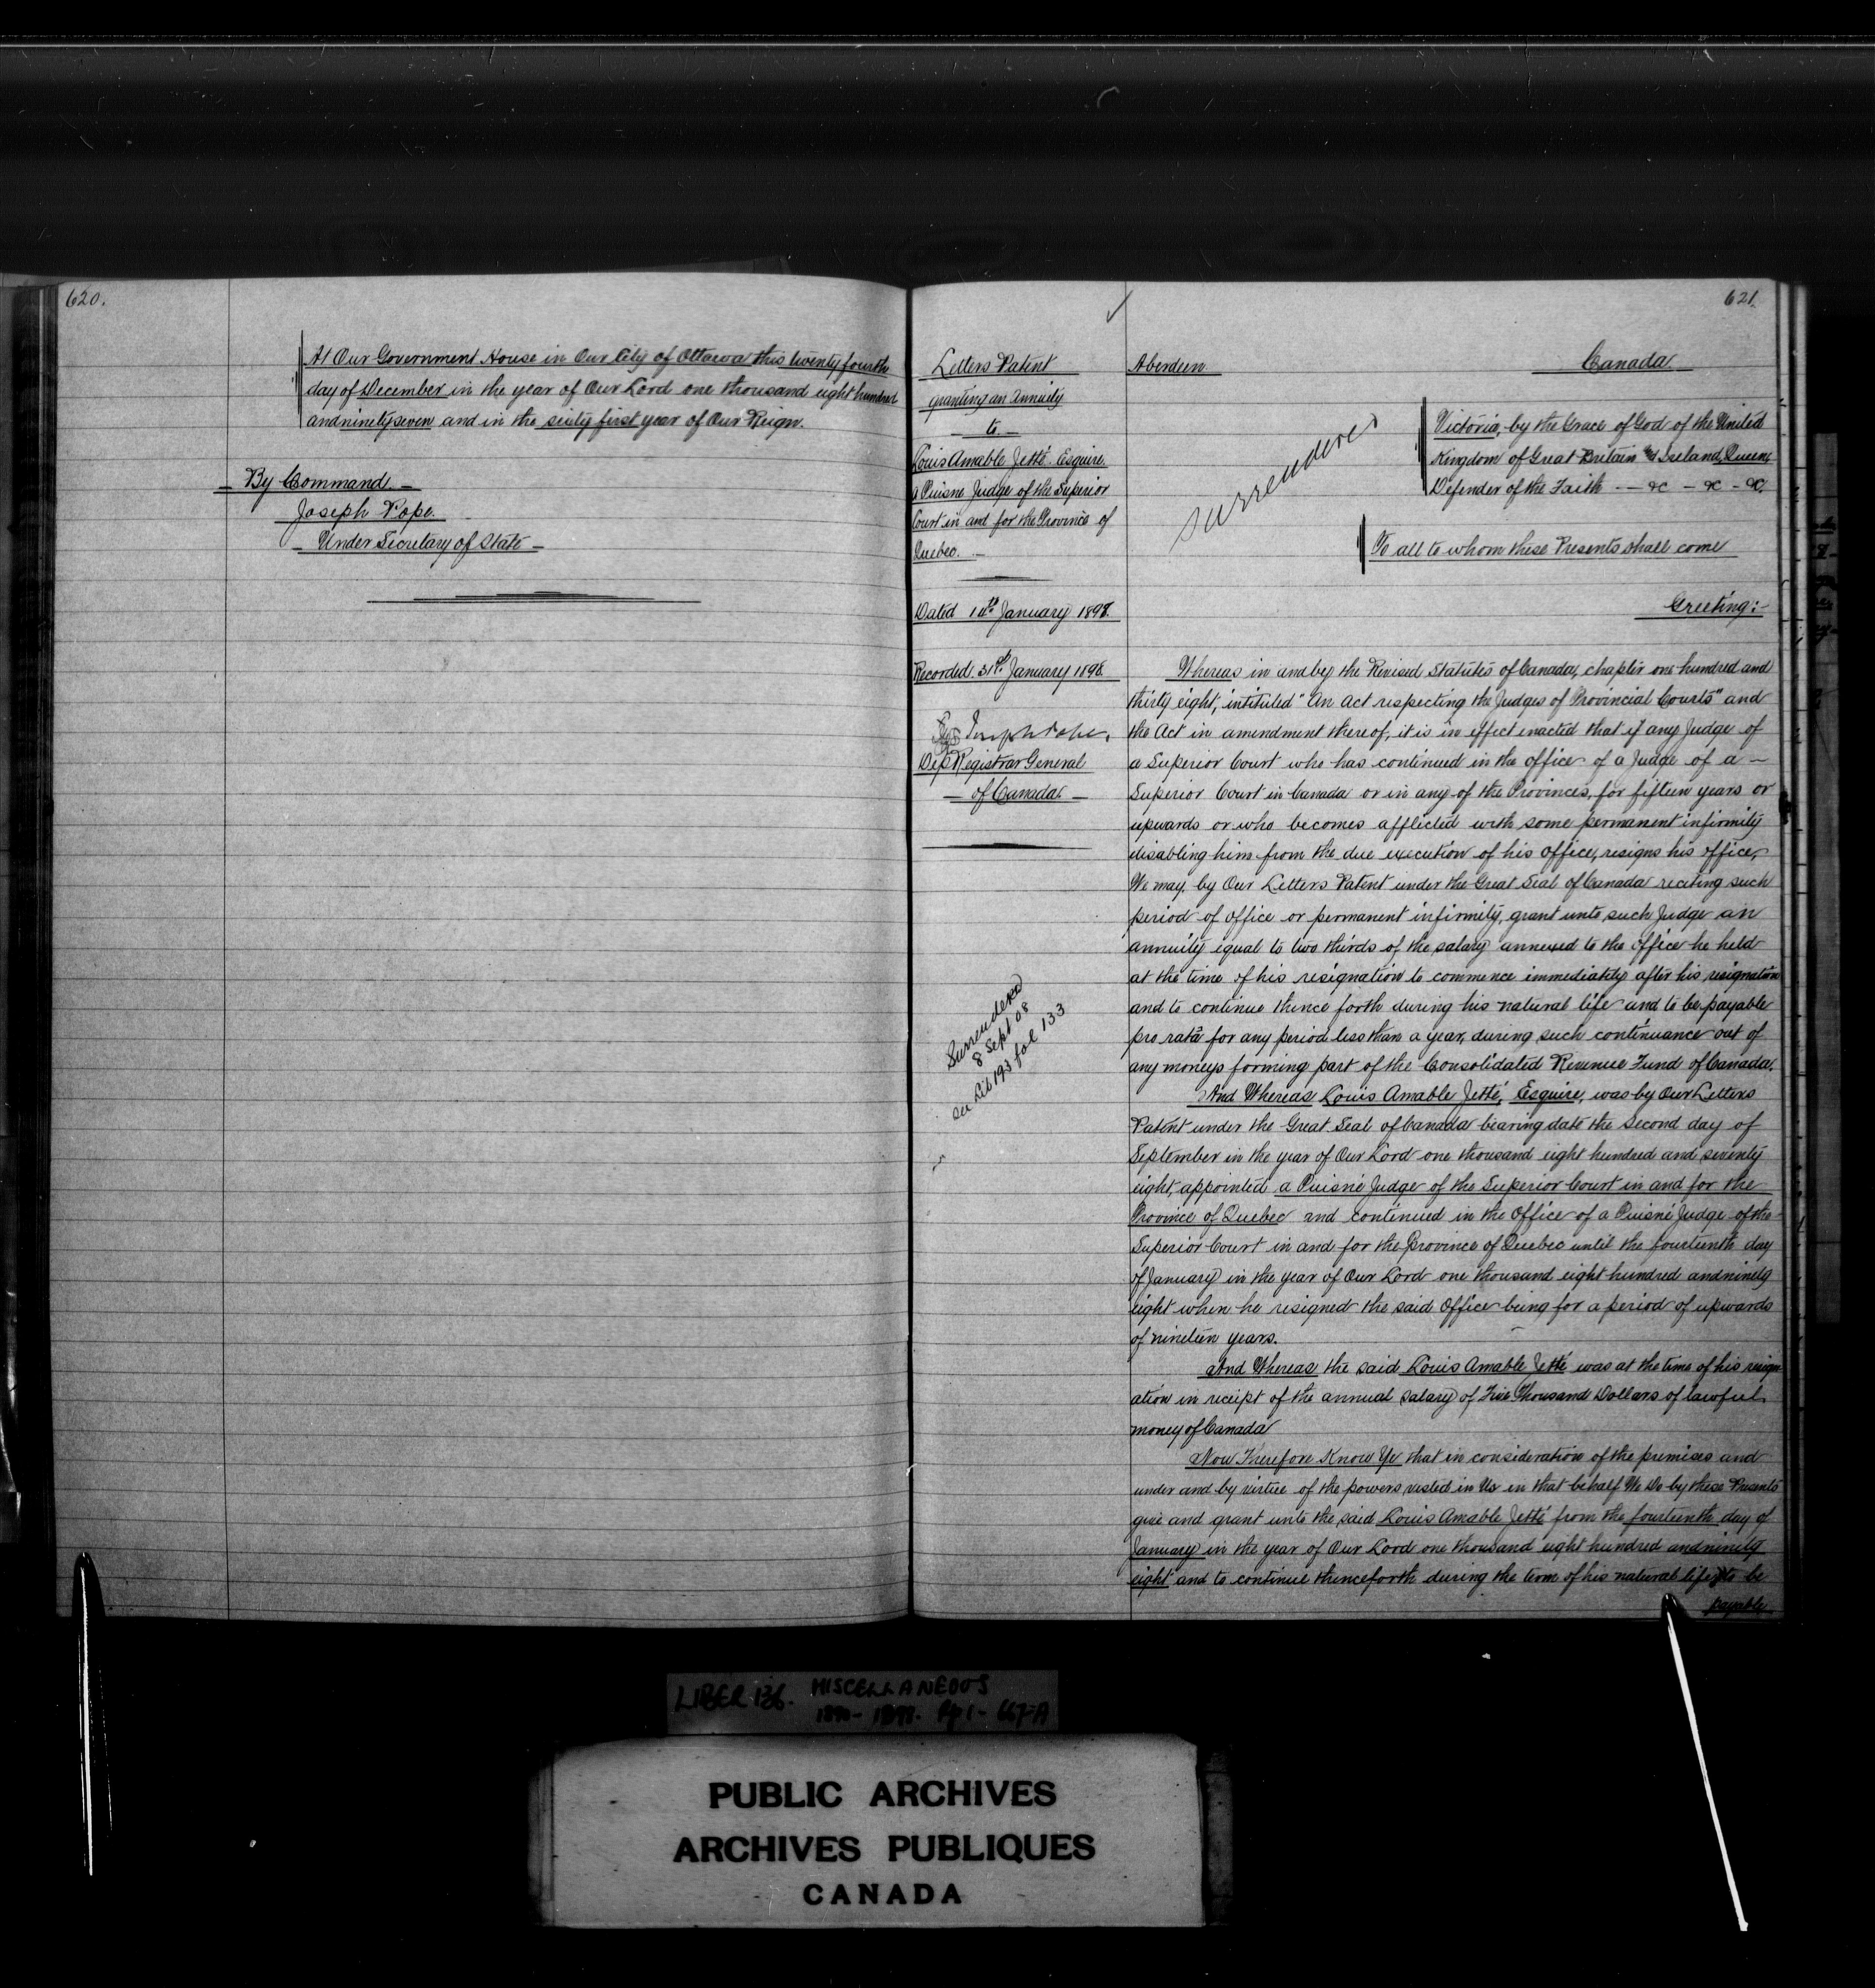 620.
At Our Government House in Our City of Ottawa this twenty fourth
day of December in the year of Our Lord one thousand eight hundred
and ninety seven and in the sixty first year of Our Reign.
By Command. —
Joseph Pope.
— Under Secretary of State —
621.
Letters Patent
granting an Annuity
— to. —
Louis Amable Jetté Esquire.
a Puisne Judge of the Superior
Court in and for the Province of
Quebec. —
Dated 14th January 1898.
Recorded 31st January 1898.
Joseph Pope.
Dep Registrar General
— of Canada. —
Surrendered
8 Sept 08
see Lib 193 fol 133
Aberdeen.
Canada.
surrendered
Victoria, by the Grace of God of the United
Kingdom of Great Britain and Ireland, Queen,
Defender of the Faith — &c — &c — &c.
To all to whom these Presents shall come
Greeting:—
Whereas in and by the Revised Statutes of Canada, chapter one hundred and
thirty eight, intituled "An Act respecting the Judges of Provincial Courts" and
the Act in amendment thereof, it is in effect enacted that if any Judge of
a Superior Court who has continued in the office of a Judge of a —
Superior Court in Canada or in any of the Provinces, for fifteen years or
upwards or who becomes afflicted with some permanent infirmity
disabling him from the due execution of his office, resigns his office,
We may, by Our Letters Patent under the Great Seal of Canada reciting such
period of office or permanent infirmity, grant unto such Judge an
annuity equal to two thirds of the salary annexed to the office he held
at the time of his resignation to commence immediately after his resignation
and to continue thence forth during his natural life and to be payable
pro rata for any period less than a year, during such continuance out of
any moneys forming part of the Consolidated Revenue Fund of Canada.
And Whereas Louis Amable Jetté, Esquire, was by Our Letters
Patent under the Great Seal of Canada bearing date the Second day of
September in the year of Our Lord one thousand eight hundred and seventy
eight, appointed a Puisné Judge of the Superior Court in and for the
Province of Quebec and continued in the Office of a Puisné Judge of the
Superior Court in and for the Province of Quebec until the fourteenth day
of January in the year of Our Lord one thousand eight hundred and ninety
eight when he resigned the said Office being for a period of upwards
of nineteen years.
And Whereas the said Louis Amable Jetté was at the time of his resign
ation in receipt of the annual salary of Five Thousand Dollars of lawful
money of Canada
Now Therefore Know Ye that in consideration of the premises and
under and by virtue of the powers vested in Us in that behalf We Do by these Presents
give and grant unto the said Louis Amable Jetté from the fourteenth day of
January in the year of Our Lord one thousand eight hundred and ninety
eight and to continue thenceforth during the term of his natural life, to be
payable
LIBER 136. MISCELLANEOUS
1898. Pp 1- 667-A
PUBLIC ARCHIVES
ARCHIVES PUBLIQUES
CANADA